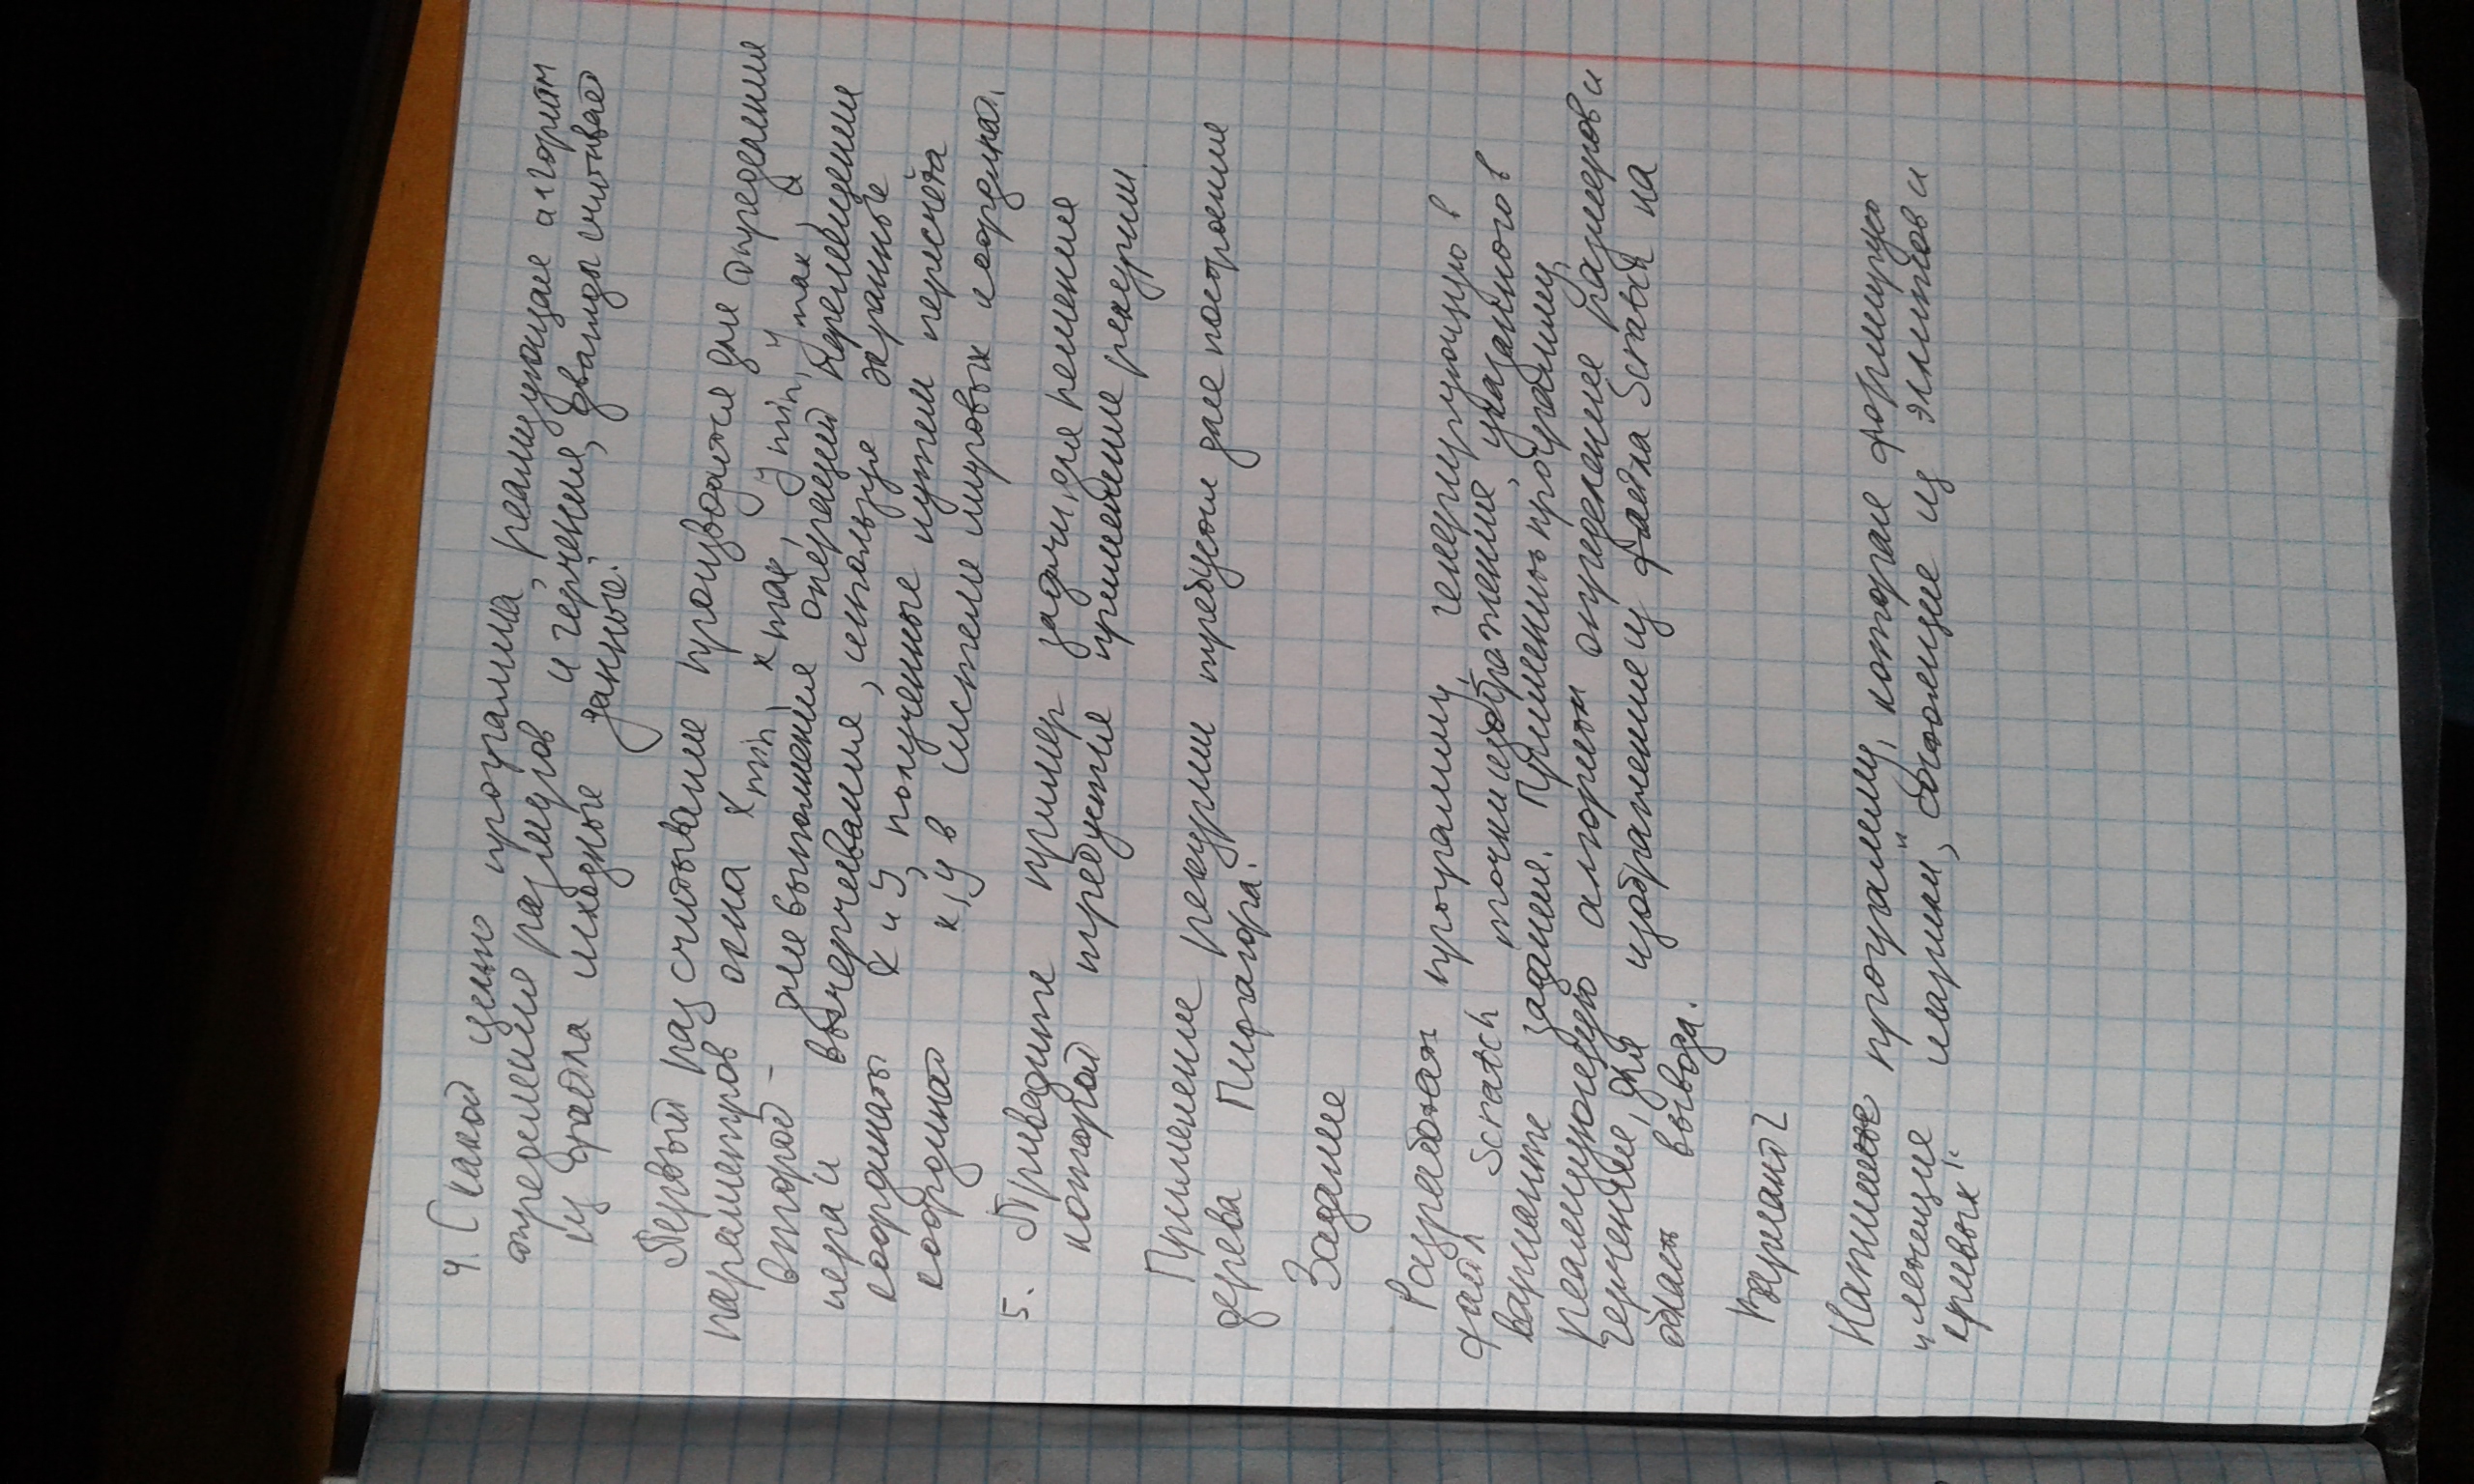 4. С какой целью программа, реализующая алгоритм
определения размеров и черчения, дважды считывает
из файла исходные данные?
Первый раз считывание производится для определения
параметров окна xmin, xmax, ymin, ymax, а
второй - для выполнения операций перемещения
пера и вычерчивания, используя экранные
координаты X и Y, полученные путем пересчёта
координат x, y в системе мировых координат.
5. Приведите пример задачи, для решения
которой требуется применение рекурсии.
Применение рекурсии требуется для построения
дерева Пифагора.
Задание
Разработать программу, генерирующую в
файл Scratch точки изображения, указанного в
варианте задания. Применить программу,
реализующую алгоритм определения размеров и
черчения, для изображения из файла Scratch на
область вывода.
Вариант 2
Напишите программу, которая формирует
"летящие шарики", состоящие из эллипсов и
кривых"